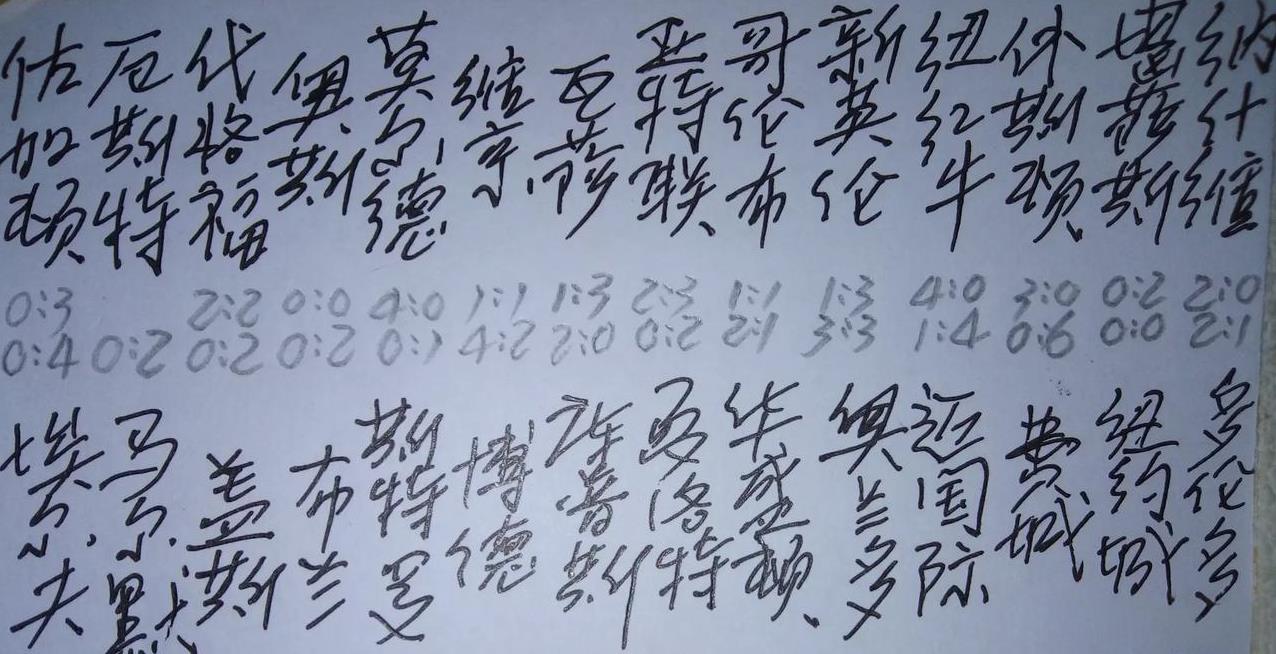 佐加顿
厄斯特
代格福
奥斯
莫尔德
维京
瓦萨
亚特联
哥伦布
新英伦
纽红牛
休斯顿
堪萨斯
纳什维
0:3 2:2 0:0 4:0 1:1 1:3 2:3 1:1 1:3 4:0 3:0 0:2 2:0
0:4 0:2 0:2 0:2 0:1 4:2 2:0 0:2 2:1 3:3 1:4 0:6 0:0 2:1
埃尔夫
马尔默
盖斯
布兰
斯特罗
博德
库普斯
夏洛特
华盛顿
奥兰多
迈国际
费城
纽约城
多伦多